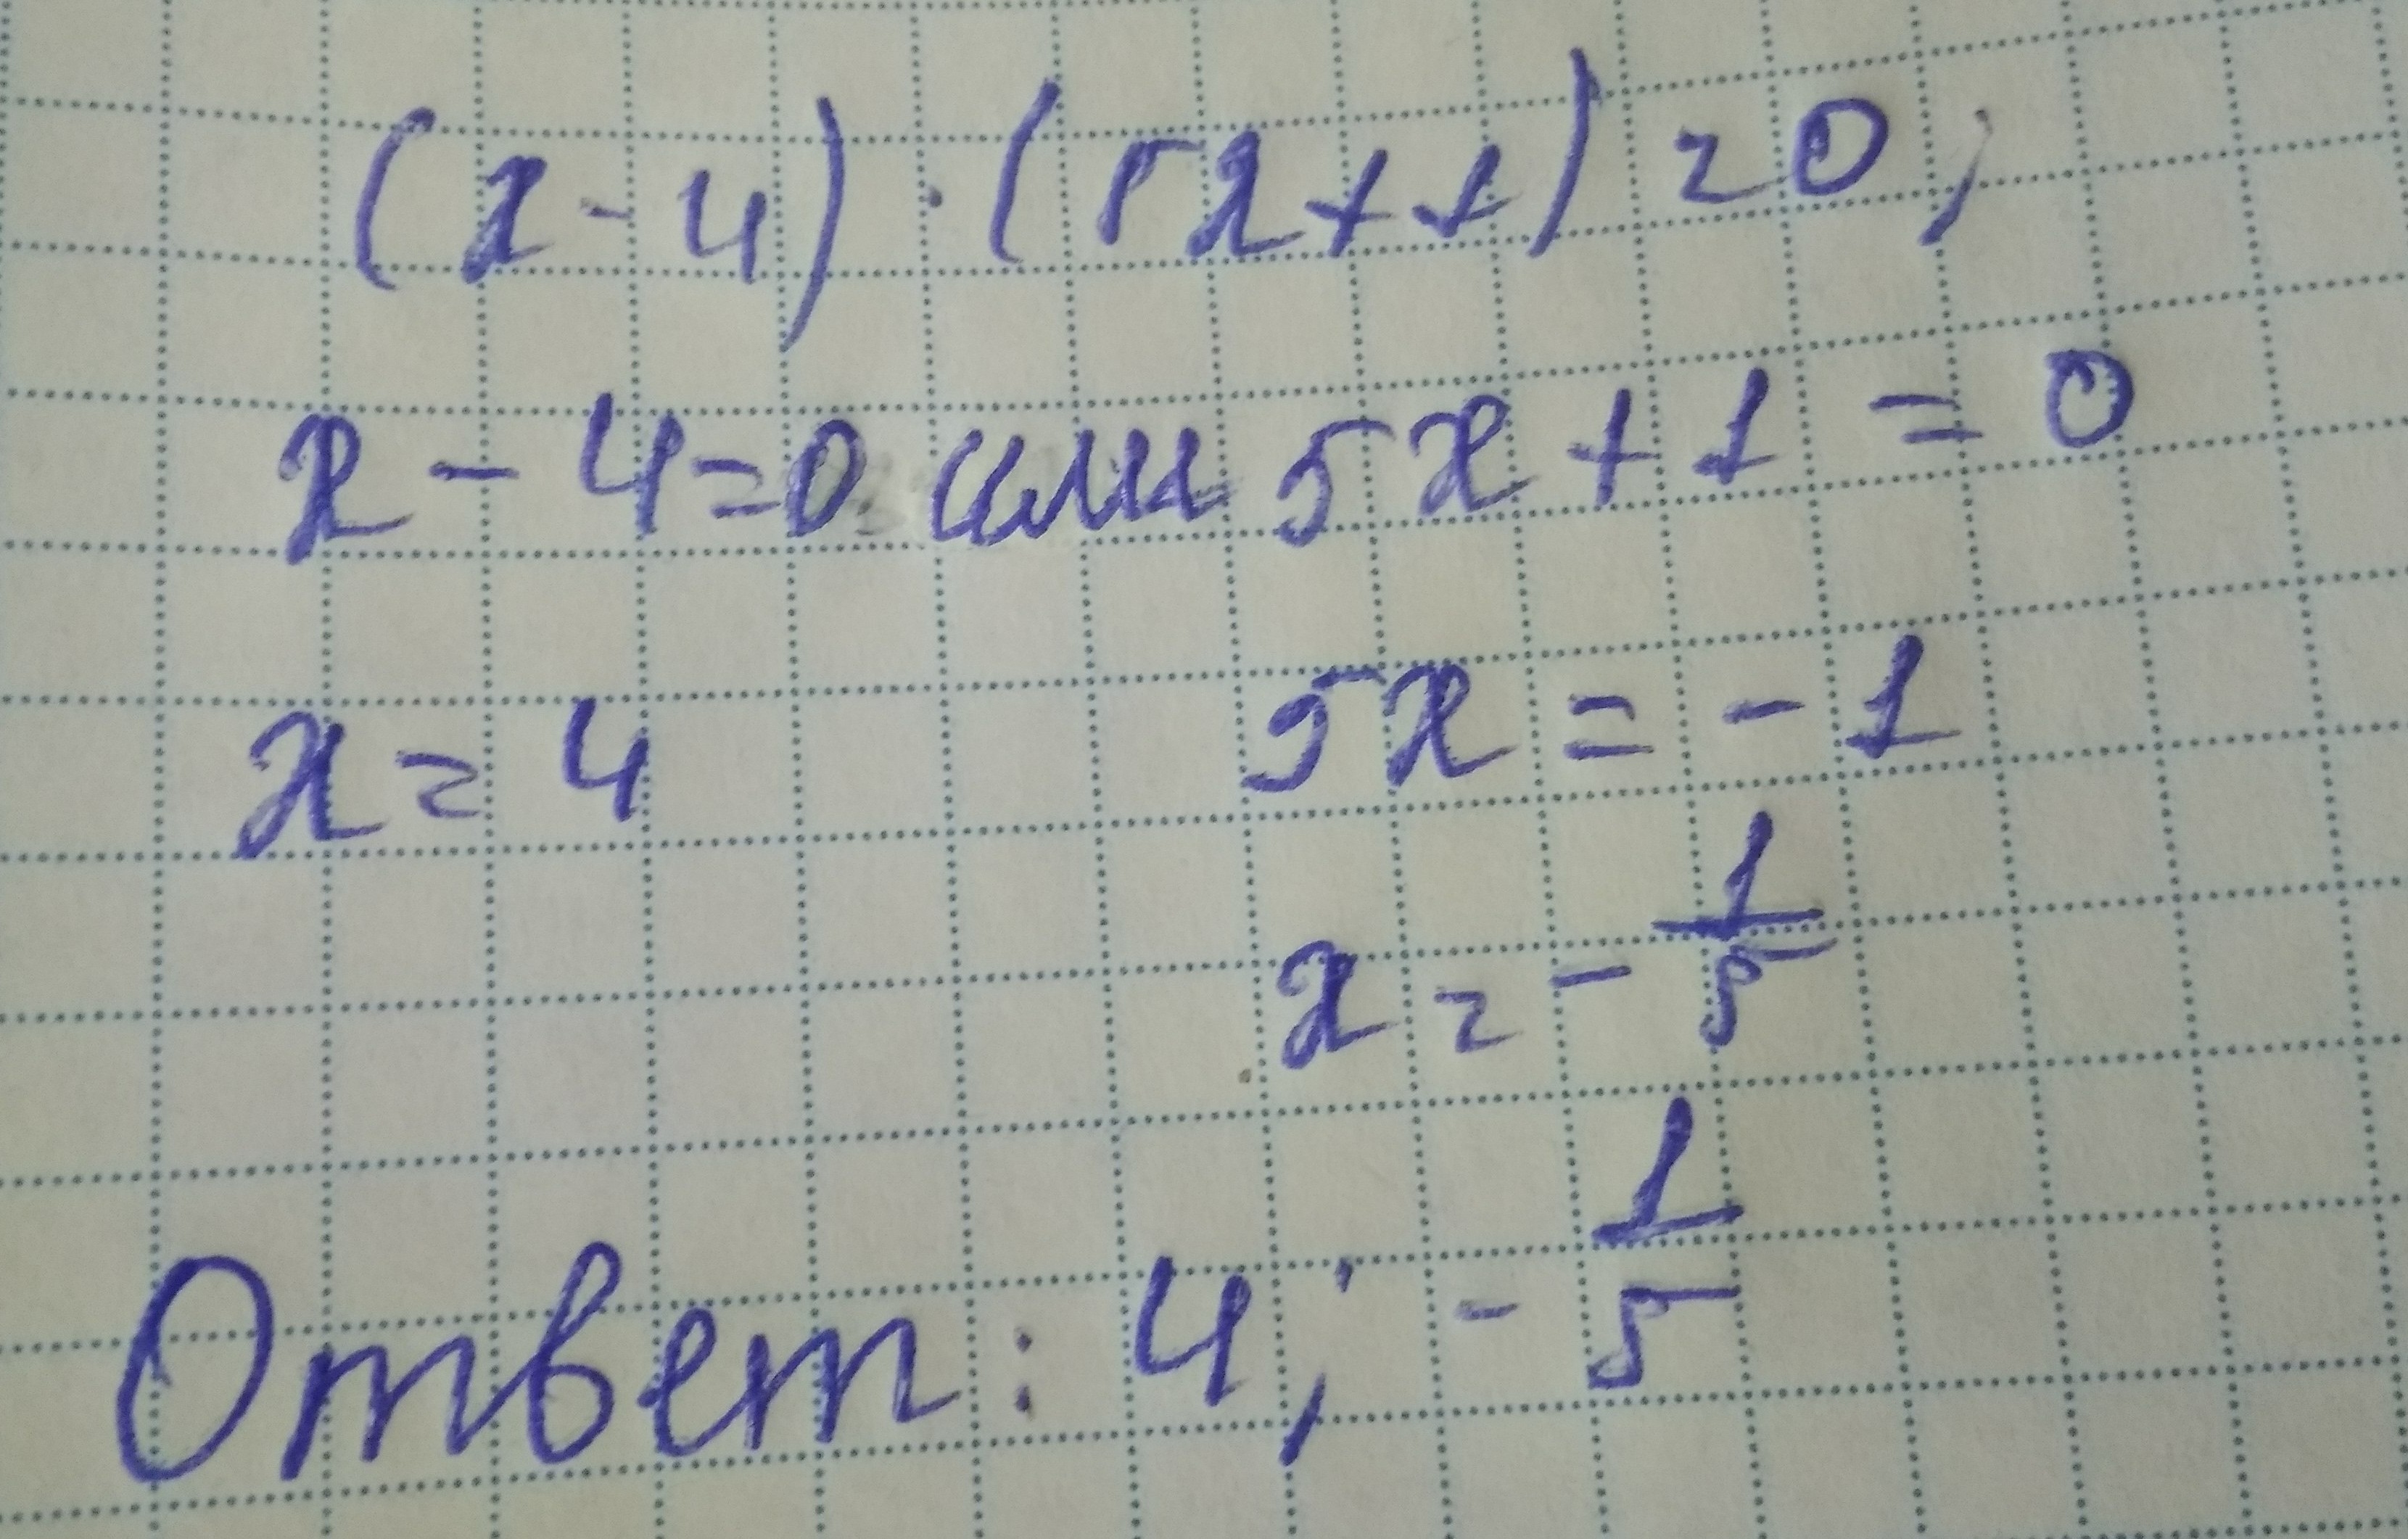 (x - 4) · (5x + 1) = 0;
x - 4 = 0 или 5x + 1 = 0
x = 4 5x = - 1
x = - 1/5
Ответ: 4; - 1/5